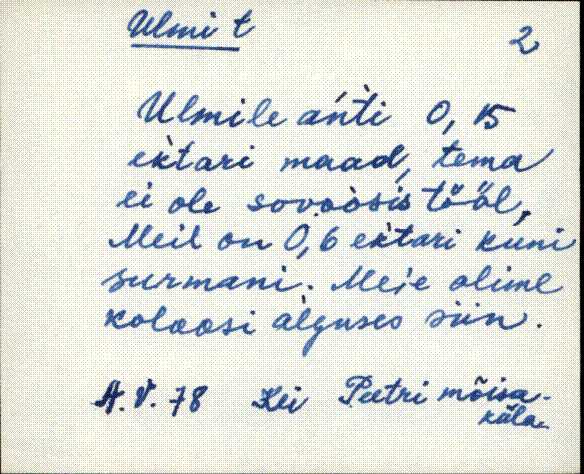 Ulmi t
2
Ulmile anti 0,15
ektari maad, tema
ei ole sovoosis tööl,
Meil on 0,6 ektari kuni
surmani. Meie olime
koloosi alguses siin.
A. V. 78 Kei Peetri mõisa-
küla.